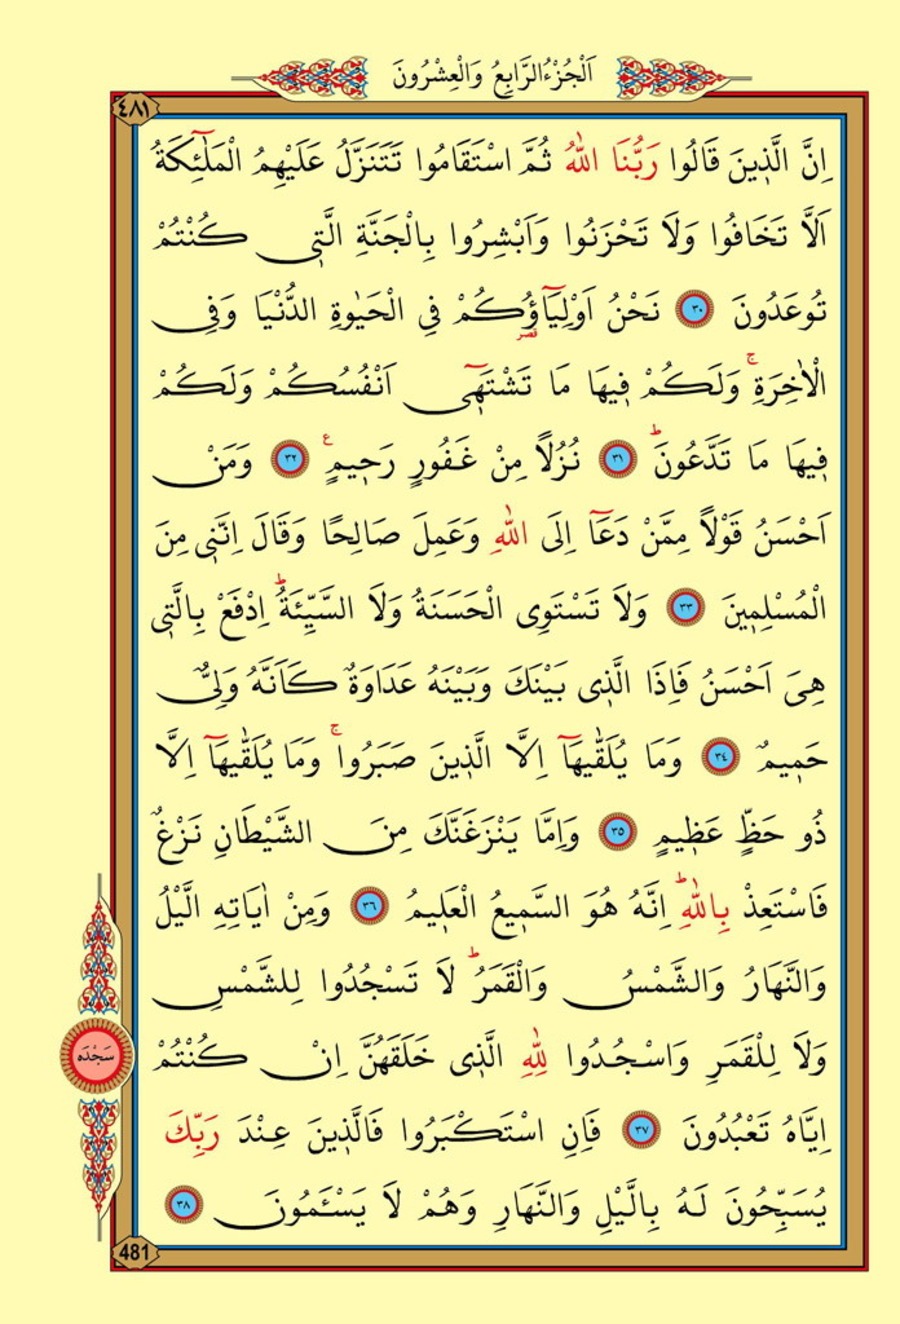 اَلْجُزْءُ الرَّابِعُ وَالْعِشْرُونَ
٤٨١
اِنَّ الَّذ۪ينَ قَالُوا رَبُّنَا اللّٰهُ ثُمَّ اسْتَقَامُوا تَتَنَزَّلُ عَلَيْهِمُ الْمَلٰٓئِكَةُ
اَلَّا تَخَافُوا وَلَا تَحْزَنُوا وَاَبْشِرُوا بِالْجَنَّةِ الَّت۪ي كُنْتُمْ
تُوعَدُونَ ﴿٣٠﴾ نَحْنُ اَوْلِيَٓاؤُ۬كُمْ فِي الْحَيٰوةِ الدُّنْيَا وَفِي
قصر
الْاٰخِرَةِۚ وَلَكُمْ ف۪يهَا مَا تَشْتَه۪ٓي اَنْفُسُكُمْ وَلَكُمْ
ف۪يهَا مَا تَدَّعُونَۜ ﴿٣١﴾ نُزُلًا مِنْ غَفُورٍ رَح۪يمٍ۟ ﴿٣٢﴾ وَمَنْ
اَحْسَنُ قَوْلًا مِمَّنْ دَعَٓا اِلَى اللّٰهِ وَعَمِلَ صَالِحًا وَقَالَ اِنَّن۪ي مِنَ
الْمُسْلِم۪ينَ ﴿٣٣﴾ وَلَا تَسْتَوِي الْحَسَنَةُ وَلَا السَّيِّئَةُۜ اِدْفَعْ بِالَّت۪ي
هِيَ اَحْسَنُ فَاِذَا الَّذ۪ي بَيْنَكَ وَبَيْنَهُ عَدَاوَةٌ كَاَنَّهُ وَلِيٌّ
حَم۪يمٌ ﴿٣٤﴾ وَمَا يُلَقّٰيهَٓا اِلَّا الَّذ۪ينَ صَبَرُواۚ وَمَا يُلَقّٰيهَٓا اِلَّا
ذُو حَظٍّ عَظ۪يمٍ ﴿٣٥﴾ وَاِمَّا يَنْزَغَنَّكَ مِنَ الشَّيْطَانِ نَزْغٌ
فَاسْتَعِذْ بِاللّٰهِۜ اِنَّهُ هُوَ السَّم۪يعُ الْعَل۪يمُ ﴿٣٦﴾ وَمِنْ اٰيَاتِهِ الَّيْلُ
وَالنَّهَارُ وَالشَّمْسُ وَالْقَمَرُۜ لَا تَسْجُدُوا لِلشَّمْسِ
وَلَا لِلْقَمَرِ وَاسْجُدُوا لِلّٰهِ الَّذ۪ي خَلَقَهُنَّ اِنْ كُنْتُمْ
سَجْدَه
اِيَّاهُ تَعْبُدُونَ ﴿٣٧﴾ فَاِنِ اسْتَكْبَرُوا فَالَّذ۪ينَ عِنْدَ رَبِّكَ
يُسَبِّحُونَ لَهُ بِالَّيْلِ وَالنَّهَارِ وَهُمْ لَا يَسْـَٔمُونَ ﴿٣٨﴾
481